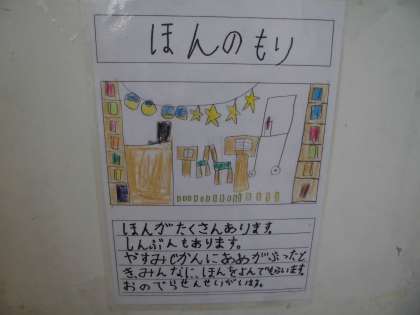 ほんのもり
ほんがたくさんあります。
しんぶんもあります。
やすみじかんにあめがふったと
き、みんなに、ほんをよんでもらいます。
おのでらせんせいがいます。